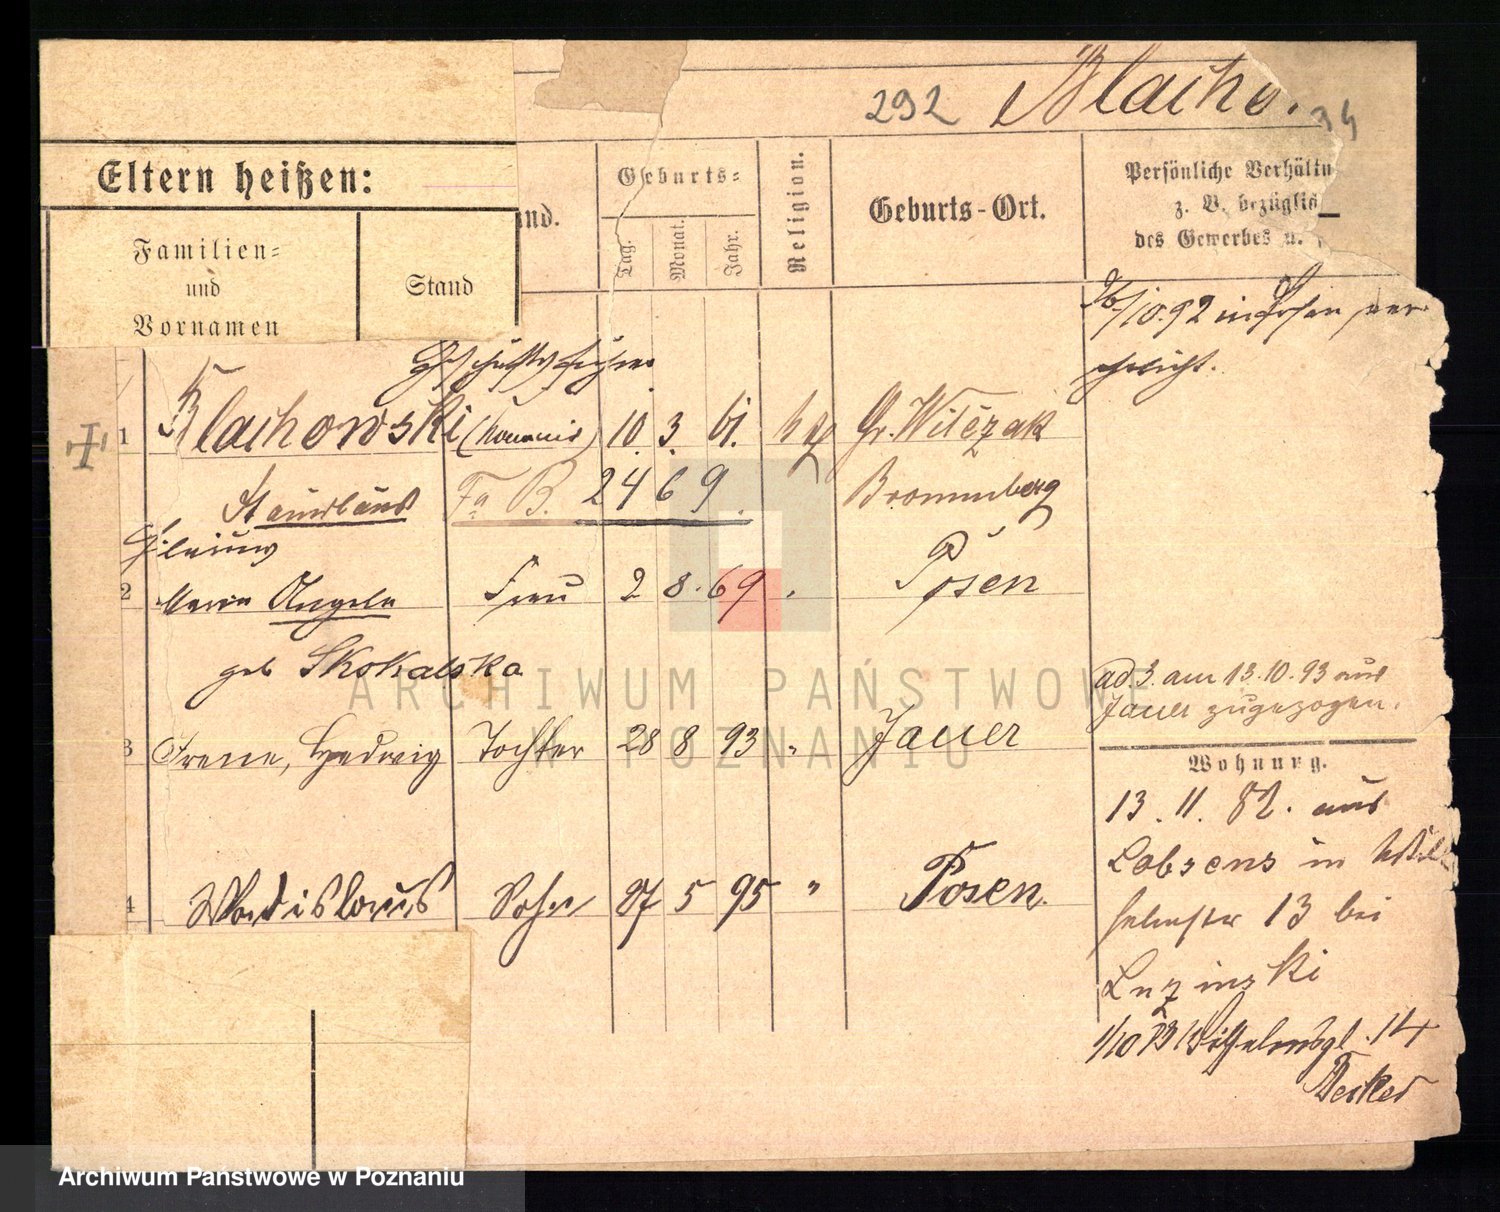 292 Blacho.
34
Eltern heißen:
Familien=
und
Vornamen
Stand
and.
Geburts=
Tag.
Monat.
Jahr.
Religion.
Geburts-Ort.
Persönliche Verhältn
z. B. bezüglic
des Gewerbes u.
26/10.92 in Posen ver
ehelicht.
Geschäftsführer
1 Blachowski (Kommis) 10. 3. 61. Gr. Wilczak
Stanislaus Fa B. 2469. Bromberg
2 Maria Angela Frau 2 8. 69 Posen
geb Skokalska
ad. 3. am 13.10.93 aus
Jauer zugezogen.
3 Irene, Hedwig Tochter 28 8 93 " Jauer
Wohnung.
13. 11. 82. aus
Lobsens in Wil
helmstr 13 bei
4 Wladislaus Sohn 27 5 95 " Posen.
Luzinski
1/10 93 Wilhelmspl. 14
Becker
ARCHIWUM PAŃSTWOWE
W POZNANIU
Archiwum Państwowe w Poznaniu